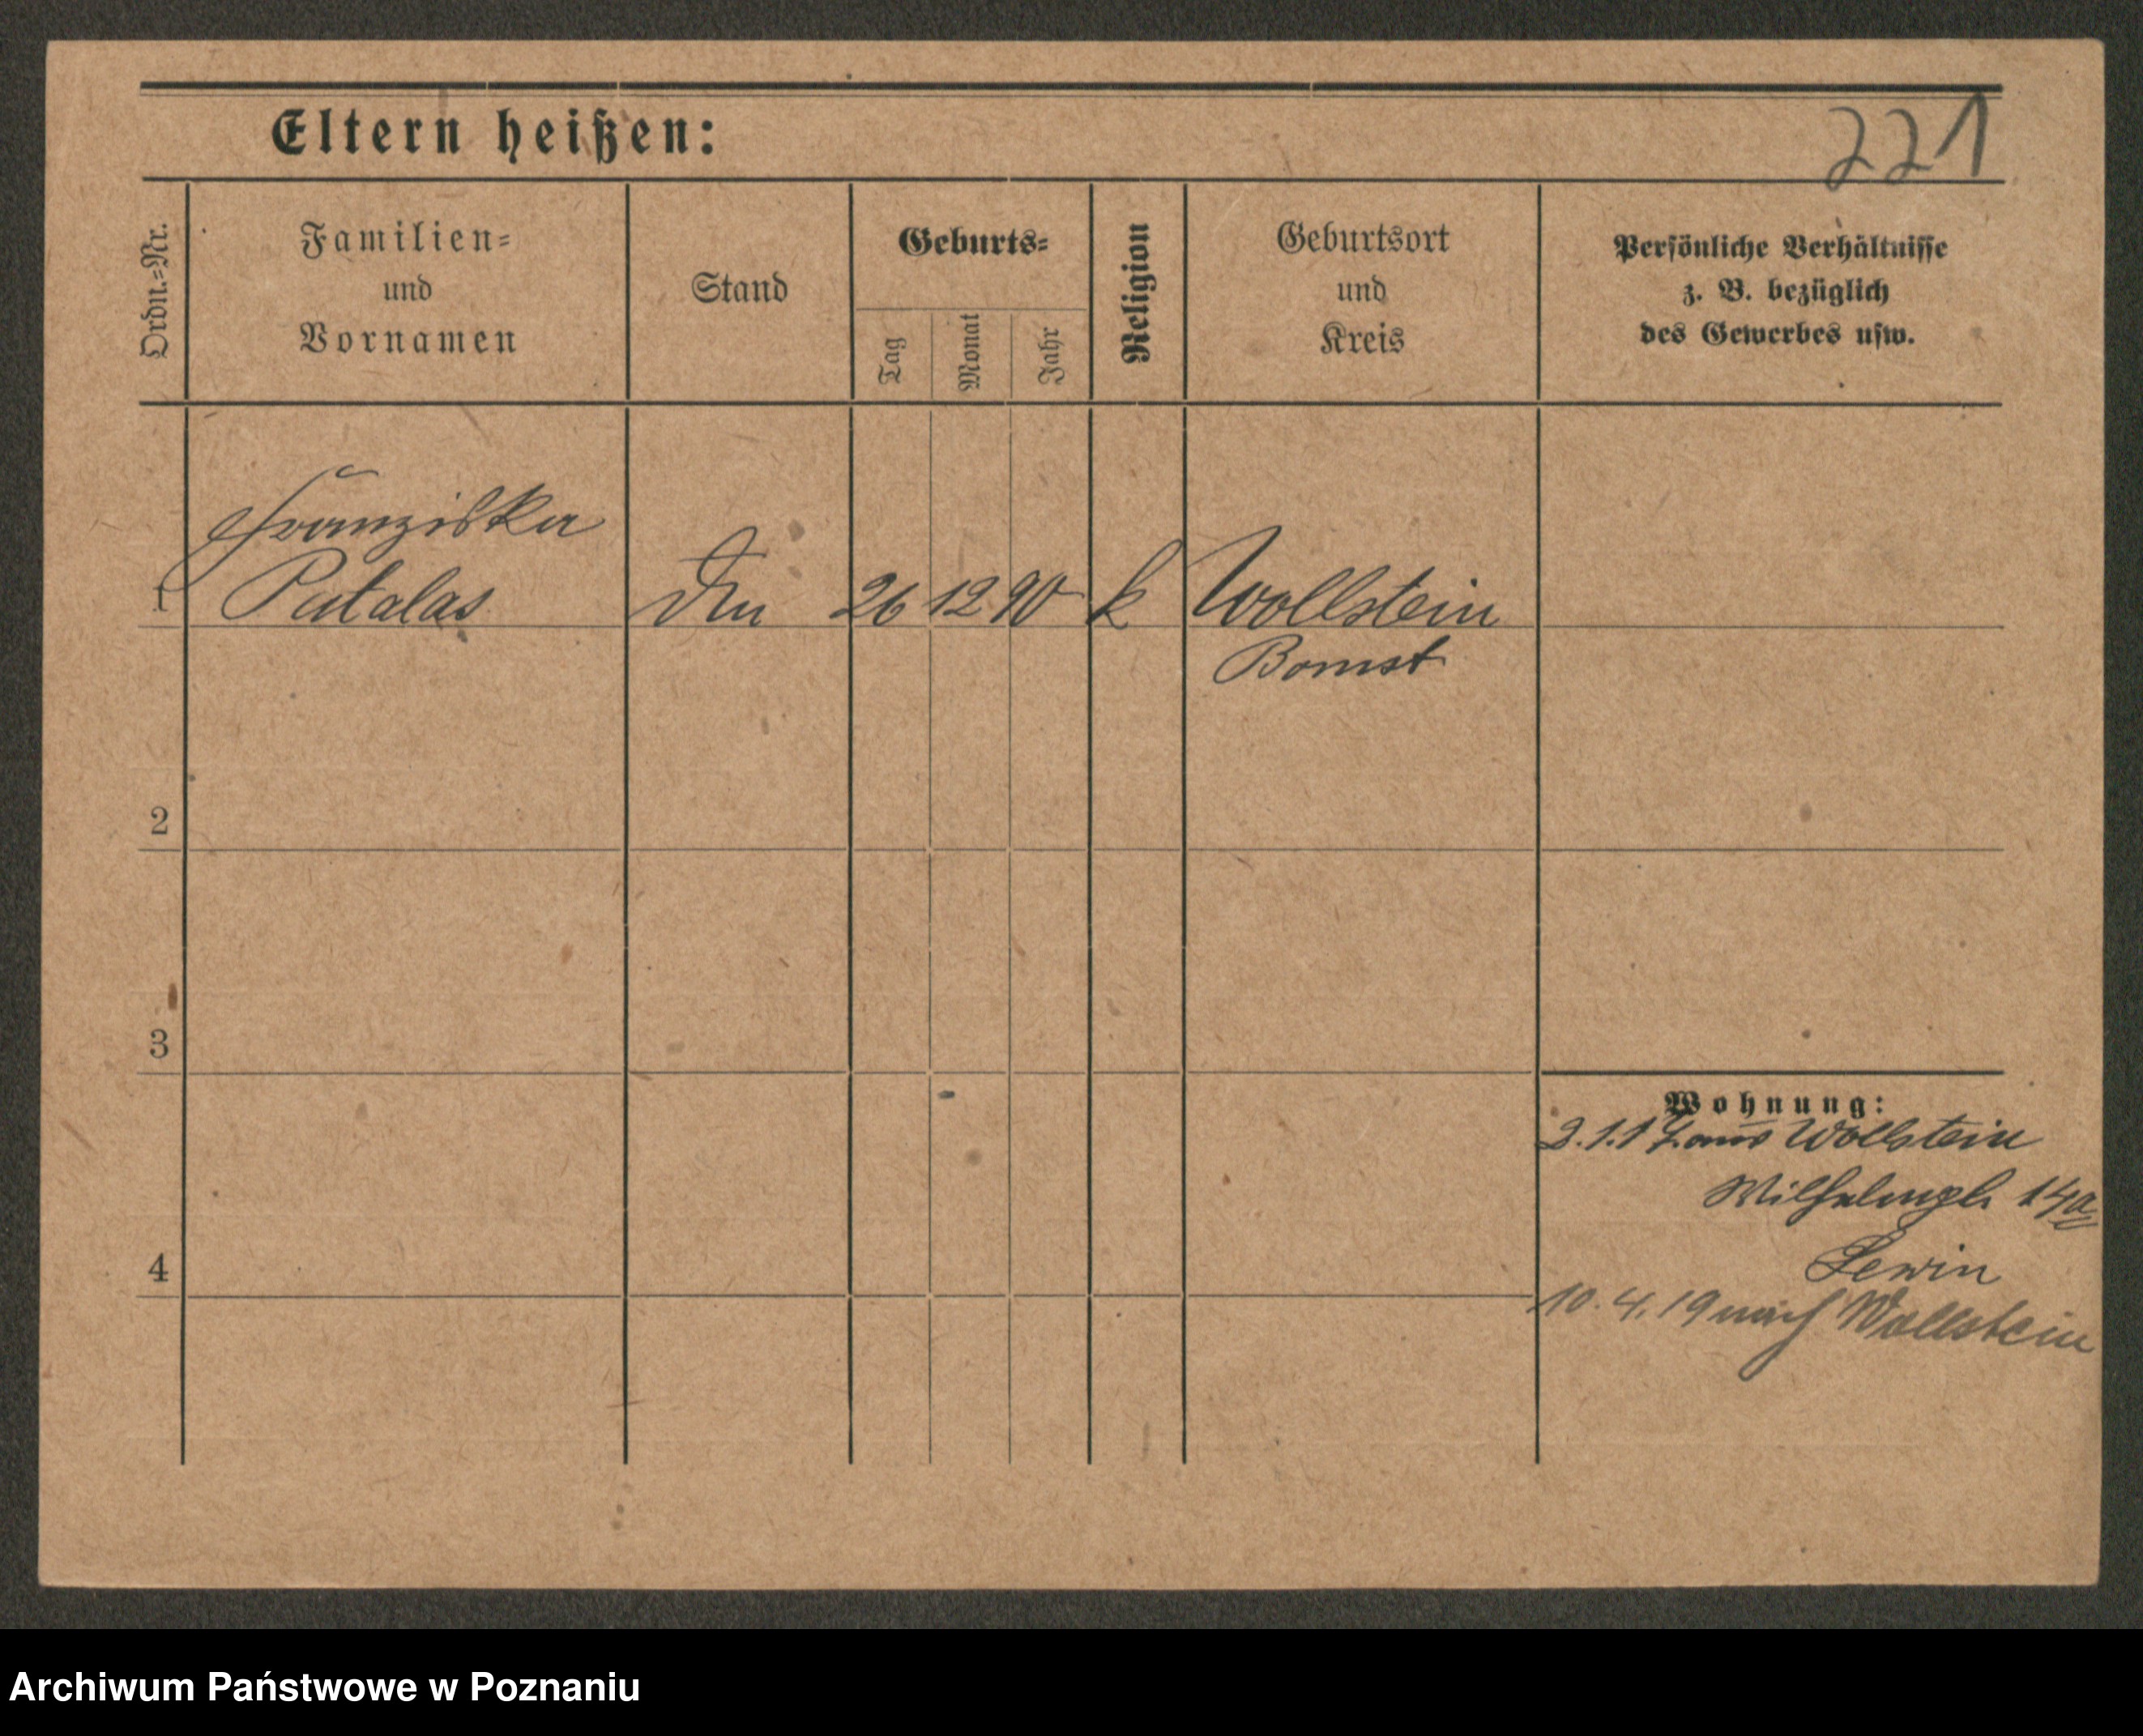 Eltern heißen:
221
Ordn.-Nr.
Familien-
und
Vornamen
Stand
Geburts-
Tag
Monat
Jahr
Religion
Geburtsort
und
Kreis
Persönliche Verhältnisse
z. B. bezüglich
des Gewerbes usw.
Franziska
1 Patalas 26 12 90 k Wollstein
Bomst
2
3
Wohnung:
3.1.17. aus Wollstein
14a
4 Lewin
10.4.19 nach Wollstein
Archiwum Państwowe w Poznaniu